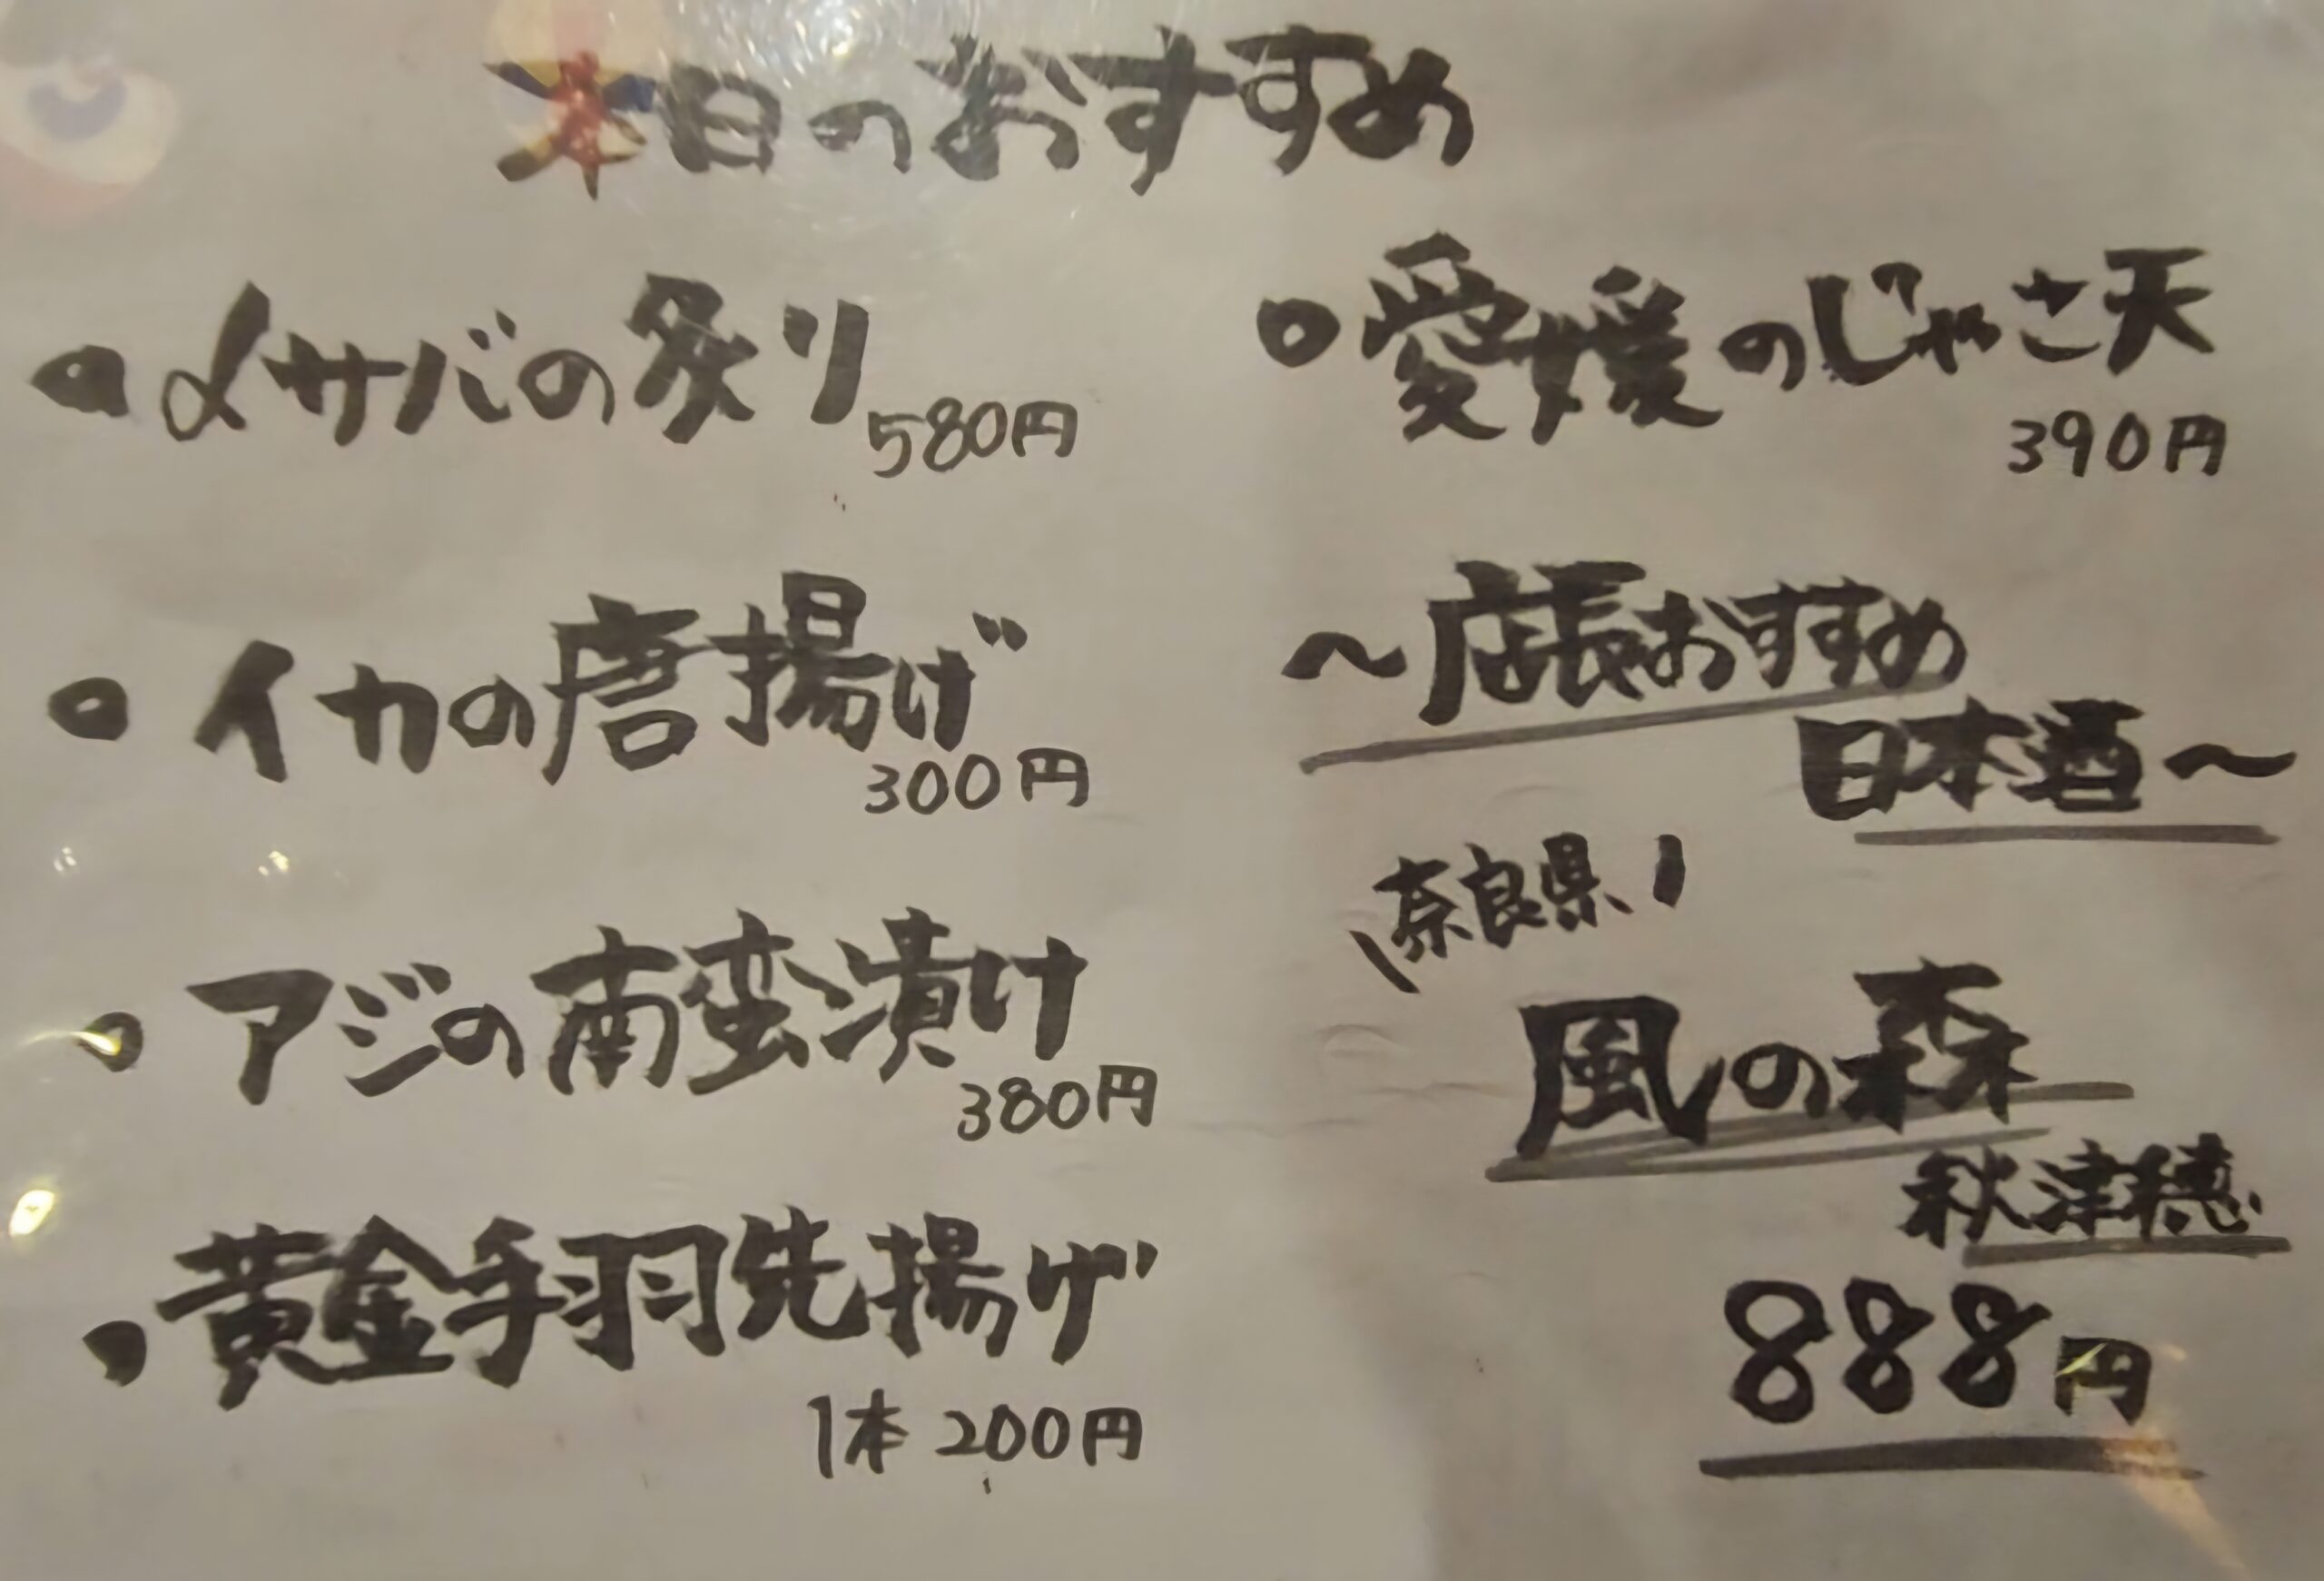 本日のおすすめ
・〆サバの炙り
580円
・イカの唐揚げ
300円
・アジの南蛮漬け
380円
・黄金手羽先揚げ
1本 200円
・愛媛のじゃこ天
390円
〜店長おすすめ
日本酒〜
奈良県
風の森
秋津穂
888円